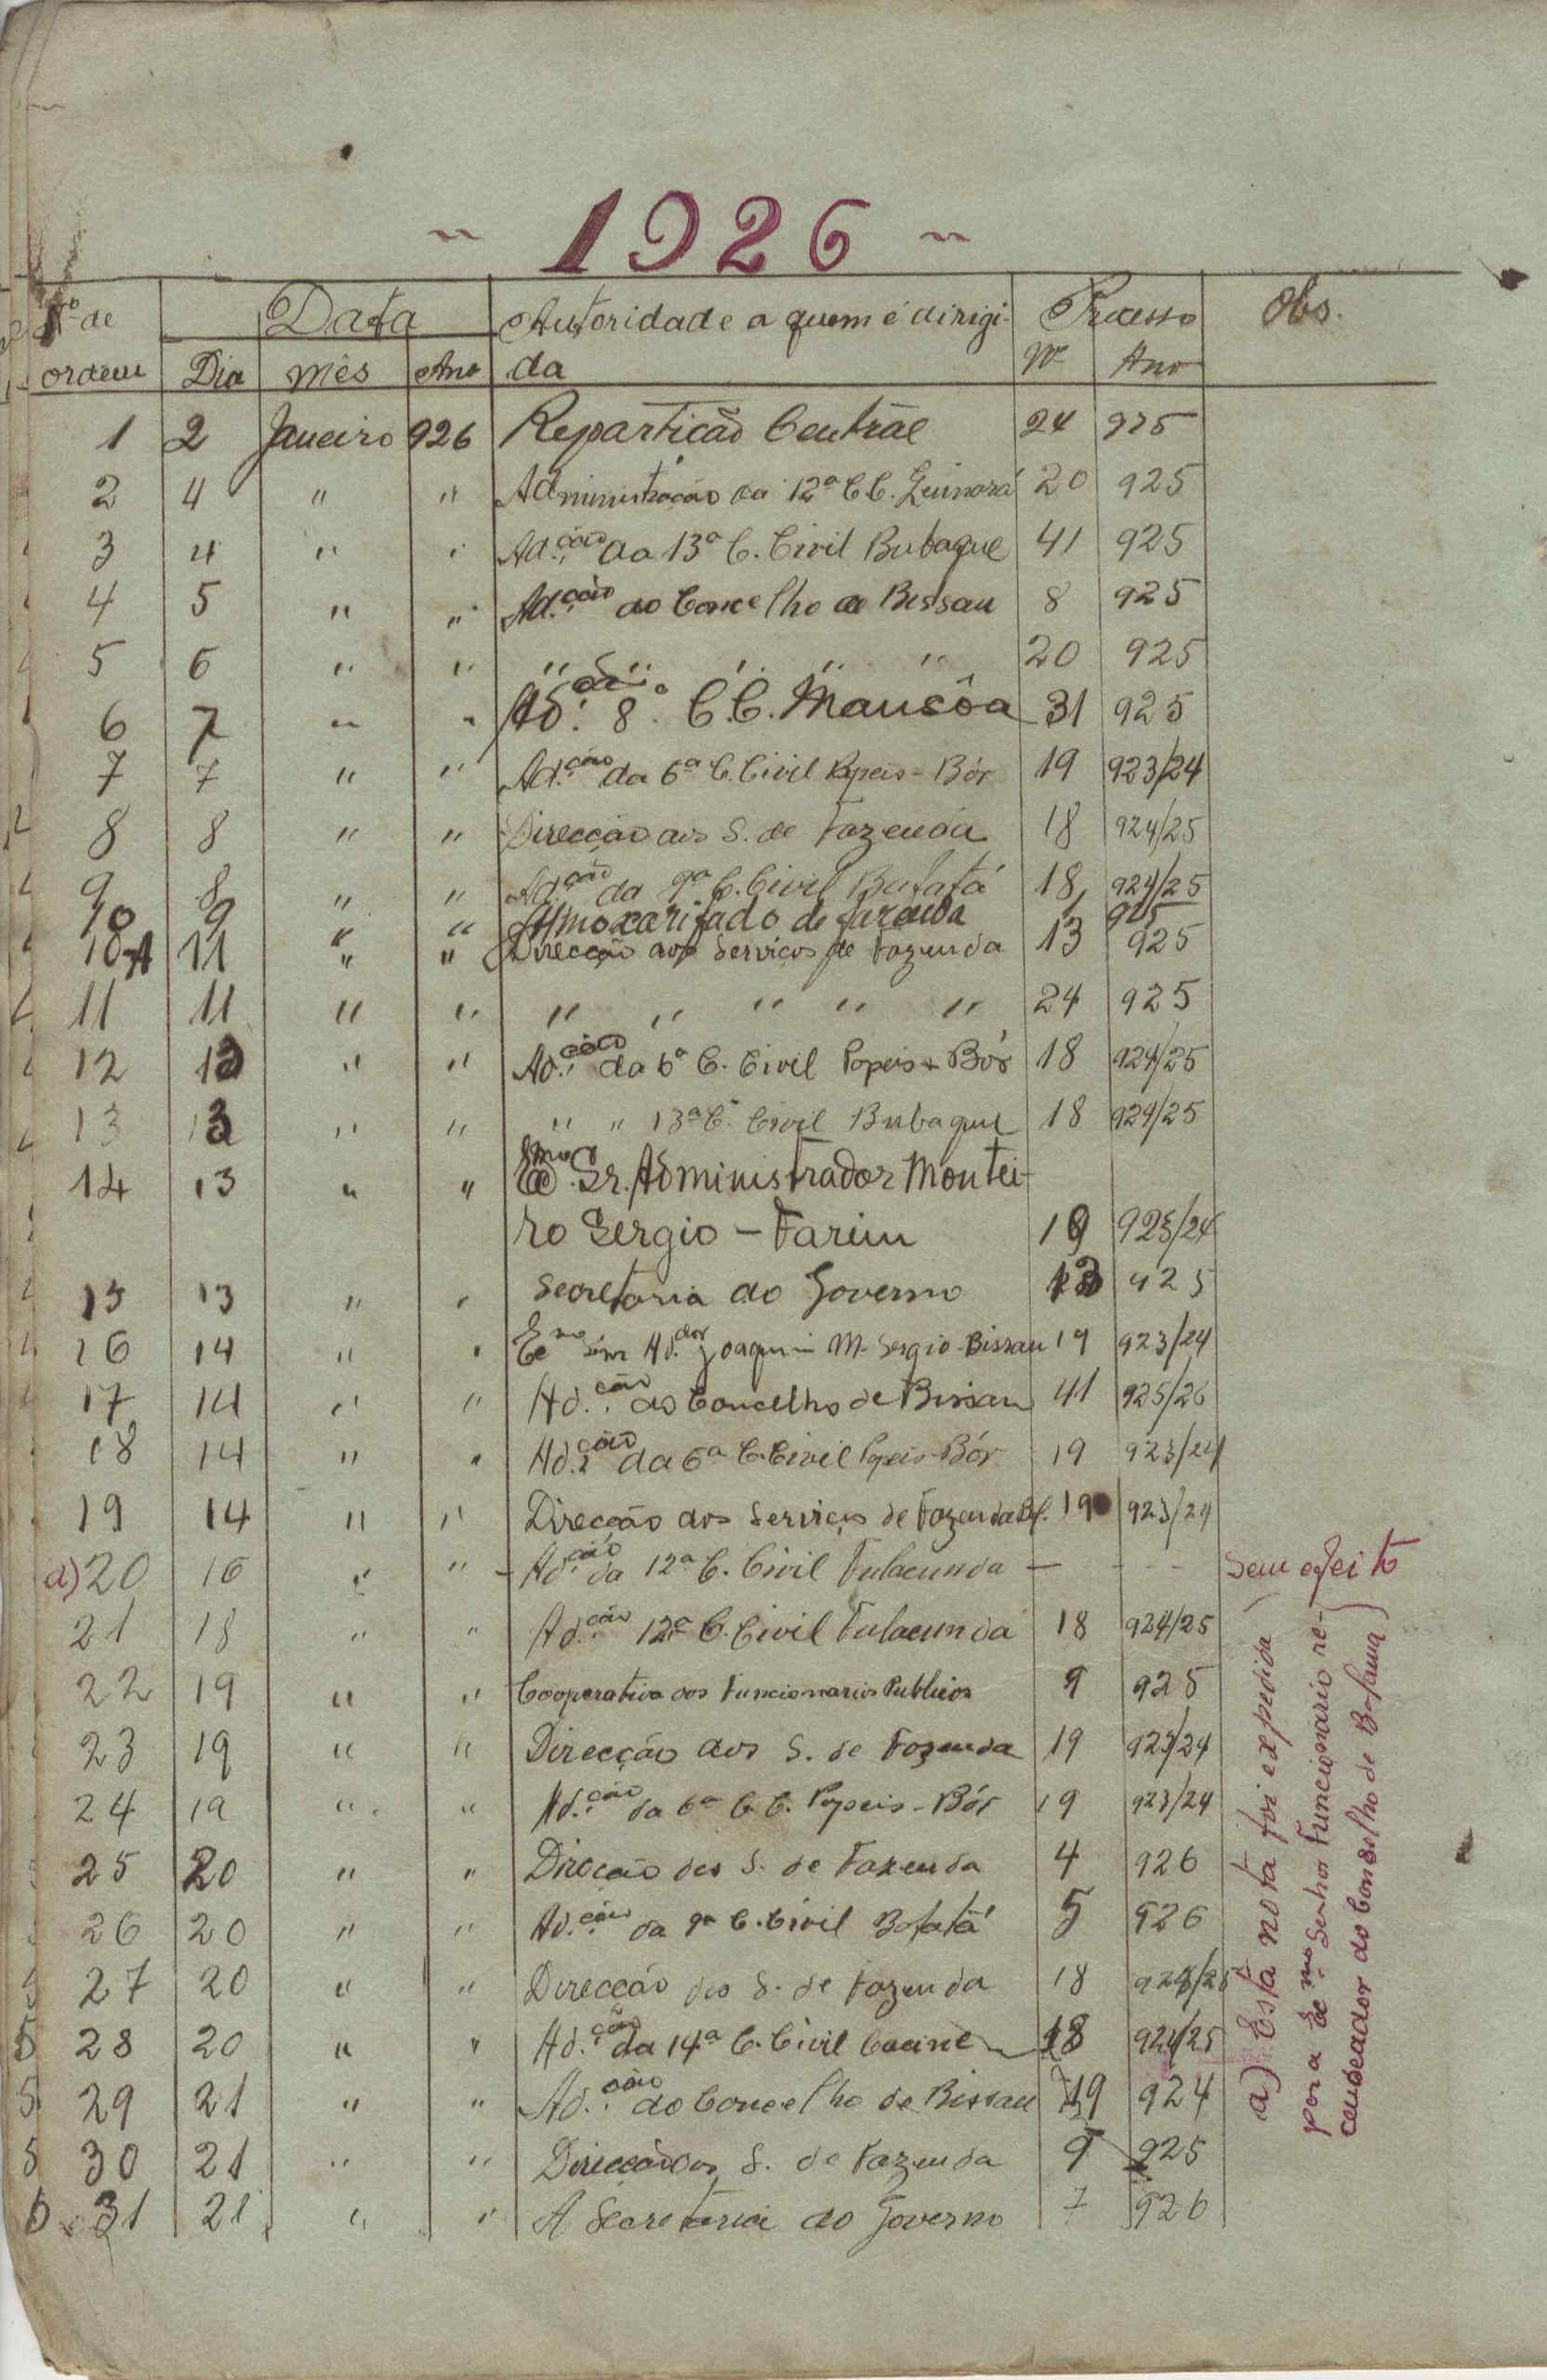 ~ 1926 ~
Nº de Data Autoridade a quem é dirigi- Processo Obs.
ordem Dia Mês Ano da Nº Ano
1 2 Janeiro 926 Repartição Central 24 925
2 4 " " Administração da 12ª C. C. Quinará 20 925
3 4 " " Ad.ção da 13ª C. Civil Bubaque 41 925
4 5 " " Ad.ção do Concelho de Bissau 8 925
5 6 " " " " " " " 20 925
6 7 " " Ad.ção 8ª C. C. Mansôa 31 925
7 7 " " Ad.ção da 6ª C. Civil Papeis - Bór 19 923/24
8 8 " " Direcção dos S. de Fazenda 18 924/25
9 8 " " Ad.ção da 9ª C. Civil Bafatá 18 924/25
10 9 " " Almoxarifado de Fazenda 925
10-A 11 " " Direcção dos Serviços de Fazenda 13 925
11 11 " " " " " " " 24 925
12 12 " " Ad.ção da 6ª C. Civil Papeis - Bór 18 924/25
13 13 " " " " 13ª C. Civil Bubaque 18 924/25
14 13 " " Sr. Administrador Montei-
ro Sergio - Farim 19 923/24
15 13 " " Secretaria do Governo 13 925
16 14 " " Snr Ad.dor Joaquim M. Sergio - Bissau 19 923/24
17 14 " " Ad.ção do Concelho de Bissau 41 925/26
18 14 " " Ad.ção da 6ª C. Civil Papeis - Bór 19 923/24
19 14 " " Direcção dos Serviços de Fazenda Bf. 19 923/24
a) 20 16 " " - Ad.ção da 12ª C. Civil Fulacunda - - - - Sem efeito
21 18 " " Ad.ção 12ª C. Civil Fulacunda 18 924/25
22 19 " " Cooperativa dos Funcionarios Publicos 9 925
23 19 " " Direcção dos S. de Fazenda 19 923/24
24 19 " " Ad.ção da 6ª C. C. Papeis - Bór 19 923/24
25 20 " " Direcção dos S. de Fazenda 4 926
26 20 " " Ad.ção da 9ª C. Civil Bafatá 5 926
27 20 " " Direcção dos S. de Fazenda 18 924/25
28 20 " " Ad.ção da 14ª C. Civil Cacine 18 924/25
29 21 " " Ad.ção do Concelho de Bissau 19 924
30 21 " " Direcção dos S. de Fazenda 9 925
31 21 " " A Secretaria do Governo 7 926
a) Esta nota foi expedida
para Senhor Funcionario re-
censeador do Concelho de Bolama)